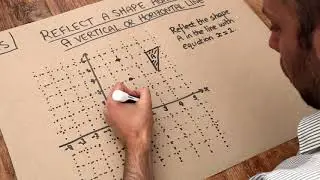 REFLECT A SHAPE
A VERTICAL OR HORIZONTAL LINE
Reflect the shape
A in the line with
equation x=2.
A
x